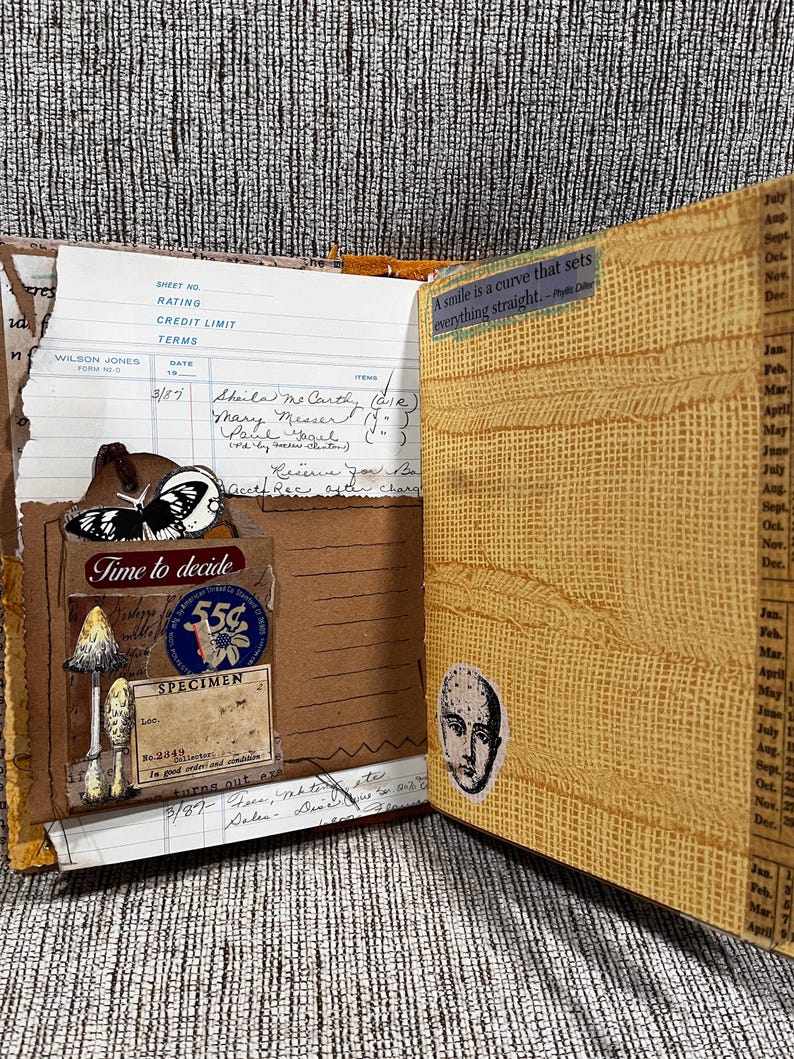 SHEET NO.
RATING
CREDIT LIMIT
TERMS
WILSON JONES
FORM No-D
DATE
19
ITEMS
3/87 Sheila McCarthy (A/R)
Mary Messer ( " )
Paul ( " )
(Pd by
Reserve for Ba
Acct Rec after charg
Time to decide
mfg by American Thread Co. Stamford Ct 06905
55¢
POLYESTER
SPECIMEN
2
Loc.
No. 2349 Collector
In good order and condition
turns out exa
3/87- Fees, etc
Sales - Disc
A smile is a curve that sets
everything straight. – Phyllis Diller
July
Aug.
Sept.
Oct.
Nov.
Dec.
Jan.
Feb.
Mar.
April
May
June
July
Aug.
Sept.
Oct.
Nov.
Dec.
Jan.
Feb.
Mar.
April
May
June
July
Aug.
Sept.
Oct.
Nov.
Dec.
Jan.
Feb.
Mar.
April